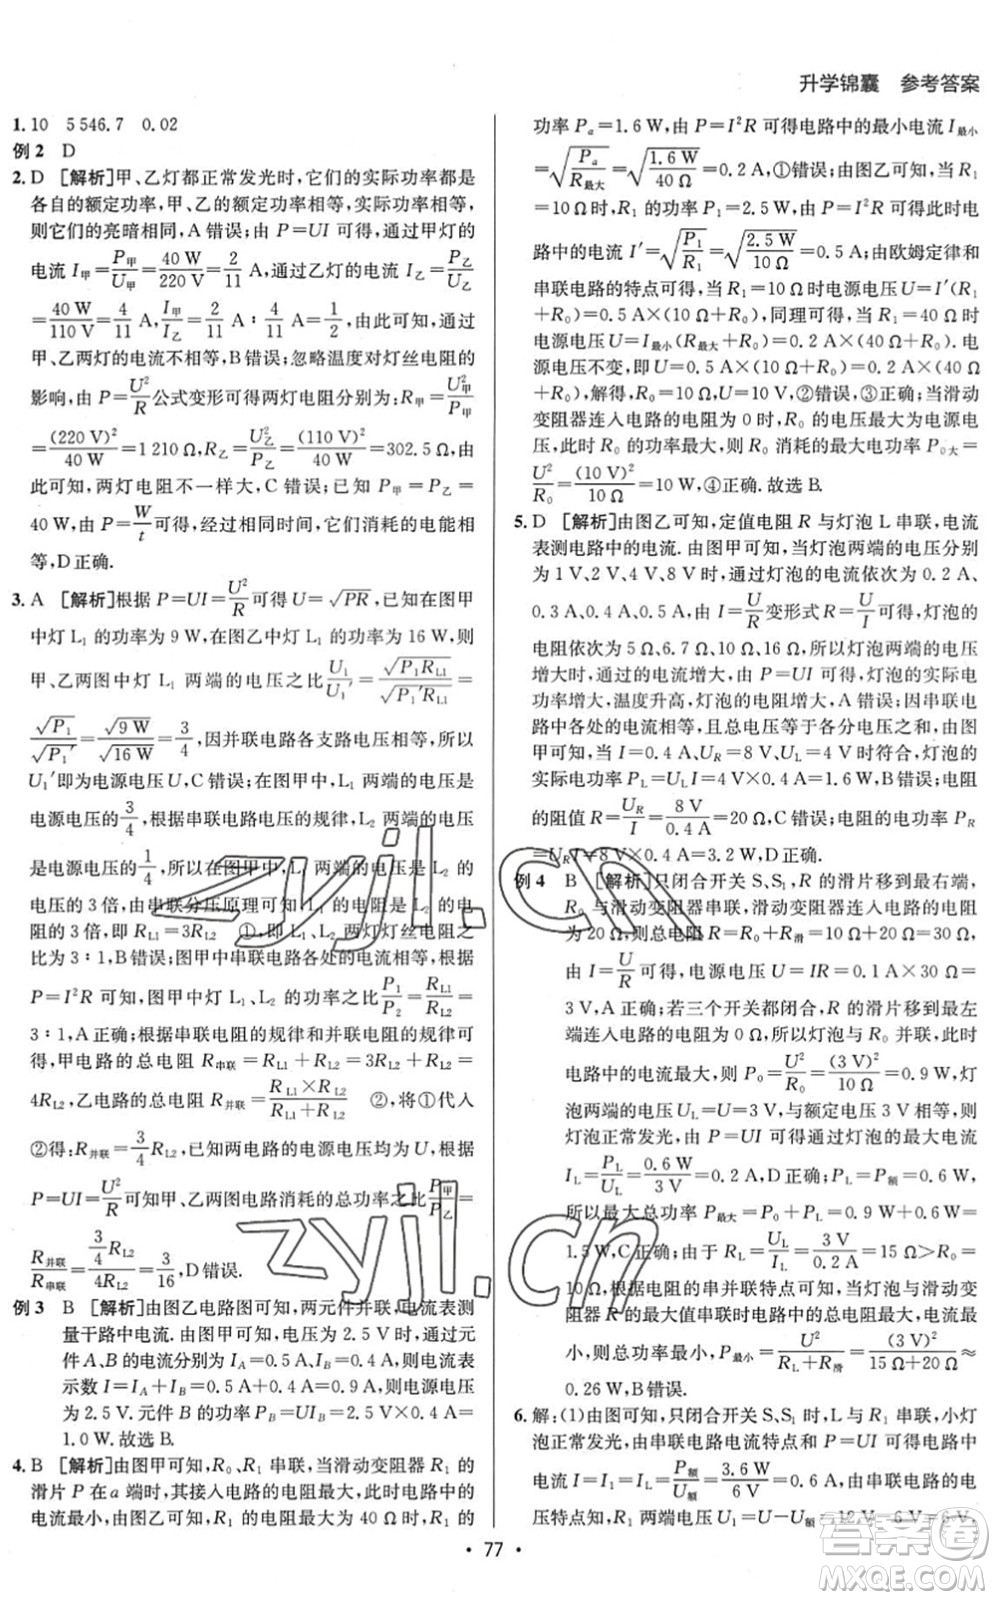 升学锦囊 参考答案
1. 10 5 546.7 0.02
例 2 D
2. D [解析]甲、乙灯都正常发光时,它们的实际功率都是
各自的额定功率,甲、乙的额定功率相等,实际功率相等,
则它们的亮暗相同,A 错误;由 P=UI 可得,通过甲灯的
电流 I甲=P甲/U甲=40 W/220 V=2/11 A,通过乙灯的电流 I乙=P乙/U乙
=40 W/110 V=4/11 A,I甲/I乙=2/11 A:4/11 A=1/2,由此可知,通过
甲、乙两灯的电流不相等,B 错误;忽略温度对灯丝电阻的
影响,由 P=U²/R公式变形可得两灯电阻分别为:R甲=U²甲/P甲
=(220 V)²/40 W=1 210 Ω,R乙=U²乙/P乙=(110 V)²/40 W=302.5 Ω,由
此可知,两灯电阻不一样大,C 错误;已知 P甲=P乙=
40 W,由 P=W/t可得,经过相同时间,它们消耗的电能相
等,D 正确.
3. A [解析]根据 P=UI=U²/R可得 U=√PR,已知在图甲
中灯 L1 的功率为 9 W,在图乙中灯 L1 的功率为 16 W,则
甲、乙两图中灯 L1 两端的电压之比U1/U1′=√P1RL1/√P1′RL1=
√P1/√P1′=√9 W/√16 W=3/4,因并联电路各支路电压相等,所以
U1′即为电源电压 U,C 错误;在图甲中,L1 两端的电压是
电源电压的3/4,根据串联电路电压的规律,L2 两端的电压
是电源电压的1/4,所以在图甲中,L1 两端的电压是 L2 的
电压的 3 倍,由串联分压原理可知 L1 的灯丝电阻是 L2 的
3 倍,即 RL1=3RL2 ①,即 L1、L2 两灯灯丝电阻之
比为 3:1,B 正确;图甲中串联电路各处的电流相等,根据
P=I²R 可知,图甲中灯 L1、L2 的功率之比P1/P2=RL1/RL2=
3:1,A 正确;根据串联电阻的规律和并联电阻的规律可
得,甲电路的总电阻 R串联=RL1+RL2=3RL2+RL2=
4RL2,乙电路的总电阻 R并联=RL1×RL2/RL1+RL2 ②,将①代入
②得:R并联=3/4RL2,已知两电路的电源电压均为 U,根据
P=UI=U²/R可知甲、乙两图电路消耗的总功率之比P甲/P乙=
R并联/R串联=3/4RL2/4RL2=3/16,D 错误.
例 3 B [解析]由图乙电路图可知,两元件并联,电流表测
量干路中电流. 由图甲可知,电压为 2.5 V 时,通过元
件 A、B 的电流分别为 IA=0.5 A,IB=0.4 A,电流表
示数 I=IA+IB=0.5 A+0.4 A=0.9 A,电源电压
为 2.5 V. 元件 B 的电功率 PB=UIB=2.5 V×0.4 A=
1.0 W. 故选 B.
4. B [解析]由图甲可知,R0、R1 串联,当滑动变阻器 R1 的
滑片 P 在 a 端时,其接入电路的电阻最大,此时电路中的
电流最小,由图乙可知,R1 的电阻最大为 40 Ω 时,R1 的
功率 Pa=1.6 W,由 P=I²R 可得电路中的最小电流 I最小
=√Pa/R最大=√1.6 W/40 Ω=0.2 A,①错误;由图乙可知,当 R1
=10 Ω时,R1 的功率 P1=2.5 W,由 P=I²R 可得此时电
路中的电流 I′=√P1/R1=√2.5 W/10 Ω=0.5 A,由欧姆定律和
串联电路的特点可得,当 R1=10 Ω时电源电压 U=I′(R1
+R0)=0.5 A×(10 Ω+R0),同理可得,当 R1=40 Ω时电
源电压 U=I最小(R最大+R0)=0.2 A×(40 Ω+R0),因电
源电压不变,即 U=0.5 A×(10 Ω+R0)=0.2 A×(40 Ω
+R0),解得,R0=10 Ω,U=10 V,②错误,③正确;当滑动
变阻器连入电路的电阻为 0 时,R0 的电压最大为电源电
压,此时 R0 的功率最大,则 R0 消耗的最大电功率 P0大=
U²/R0=(10 V)²/10 Ω=10 W,④正确. 故选 B.
5. D [解析]由图乙可知,定值电阻 R 与灯泡 L 串联,电流
表测电路中的电流. 由图甲可知,当灯泡两端的电压分别
为 1 V、2 V、4 V、8 V时,通过灯泡的电流依次为 0.2 A、
0.3 A、0.4 A、0.5 A,由 I=U/R变形式 R=U/I可得,灯泡的
电阻依次为 5 Ω、6.7 Ω、10 Ω、16 Ω,所以灯泡两端的电压
增大时,通过的电流增大,由 P=UI 可得,灯泡的实际电
功率增大,温度升高,灯泡的电阻增大,A 错误;因串联电
路中各处的电流相等,且总电压等于各分电压之和,由图
甲可知,当 I=0.4 A、UR=8 V、UL=4 V时符合,灯泡的
实际电功率 PL=ULI=4 V×0.4 A=1.6 W,B错误;电阻
的阻值 R=UR/I=8 V/0.4 A=20 Ω,C错误;电阻的电功率 PR
=URI=8 V×0.4 A=3.2 W,D 正确.
例 4 B [解析]只闭合开关 S、S1,R 的滑片移到最右端,
R0 与滑动变阻器串联,滑动变阻器连入电路的电阻
为 20 Ω,则总电阻 R=R0+R滑=10 Ω+20 Ω=30 Ω,
由 I=U/R可得,电源电压 U=IR=0.1 A×30 Ω=
3 V,A正确;若三个开关都闭合,R 的滑片移到最左
端连入电路的电阻为 0 Ω,所以灯泡与 R0 并联,此时
电路中的电流最大,P0=U²/R0=(3 V)²/10 Ω=0.9 W,灯
泡两端的电压 UL=U=3 V,与额定电压 3 V相等,
灯泡正常发光,由 P=UI 可得灯泡的最大电流
IL=PL/UL=P额/U额=0.6 W/3 V=0.2 A,D正确;
所以最大总功率 P最大=P0+PL=0.9 W+0.6 W=
1.5 W,C正确;由于 RL=UL/IL=3 V/0.2 A=15 Ω>R0=
10 Ω,根据电阻的串并联特点可知,当灯泡与滑动变
阻器 R 的最大值串联时电路中的总电阻最大,电流最
小,则总功率最小,P最小=U²/RL+R滑=(3 V)²/15 Ω+20 Ω≈
0.26 W,B错误.
6. 解:(1)由图可知,只闭合开关 S、S1 时,L 与 R1 串联,小灯
泡正常发光,由串联电路电流特点和 P=UI 可得电路中
电流 I=I额=P额/U额=3.6 W/6 V=0.6 A,由串联电路的电
压特点知,R1 两端电压 U1=U−U额=12 V−6 V=6 V,
• 77 •
zyjl.cn
zyjl.cn
答案圈
MXQE.COM